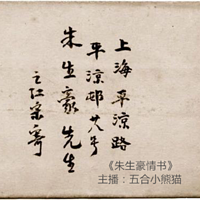 上海平涼路
平涼邨廿八号
朱生豪先生
之江宋寄
《朱生豪情书》
主播：五合小熊猫